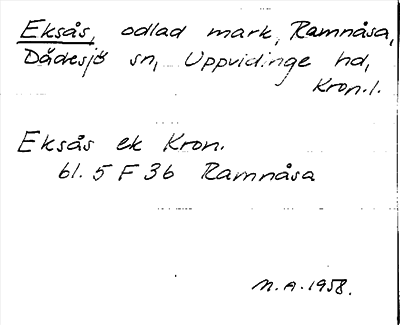 Eksås, odlad mark, Ramnåsa,
Dädesjö sn, Uppvidinge hd,
Kron.l.
Eksås ek Kron.
bl. 5 F 36 Ramnåsa
M.A. 1958.